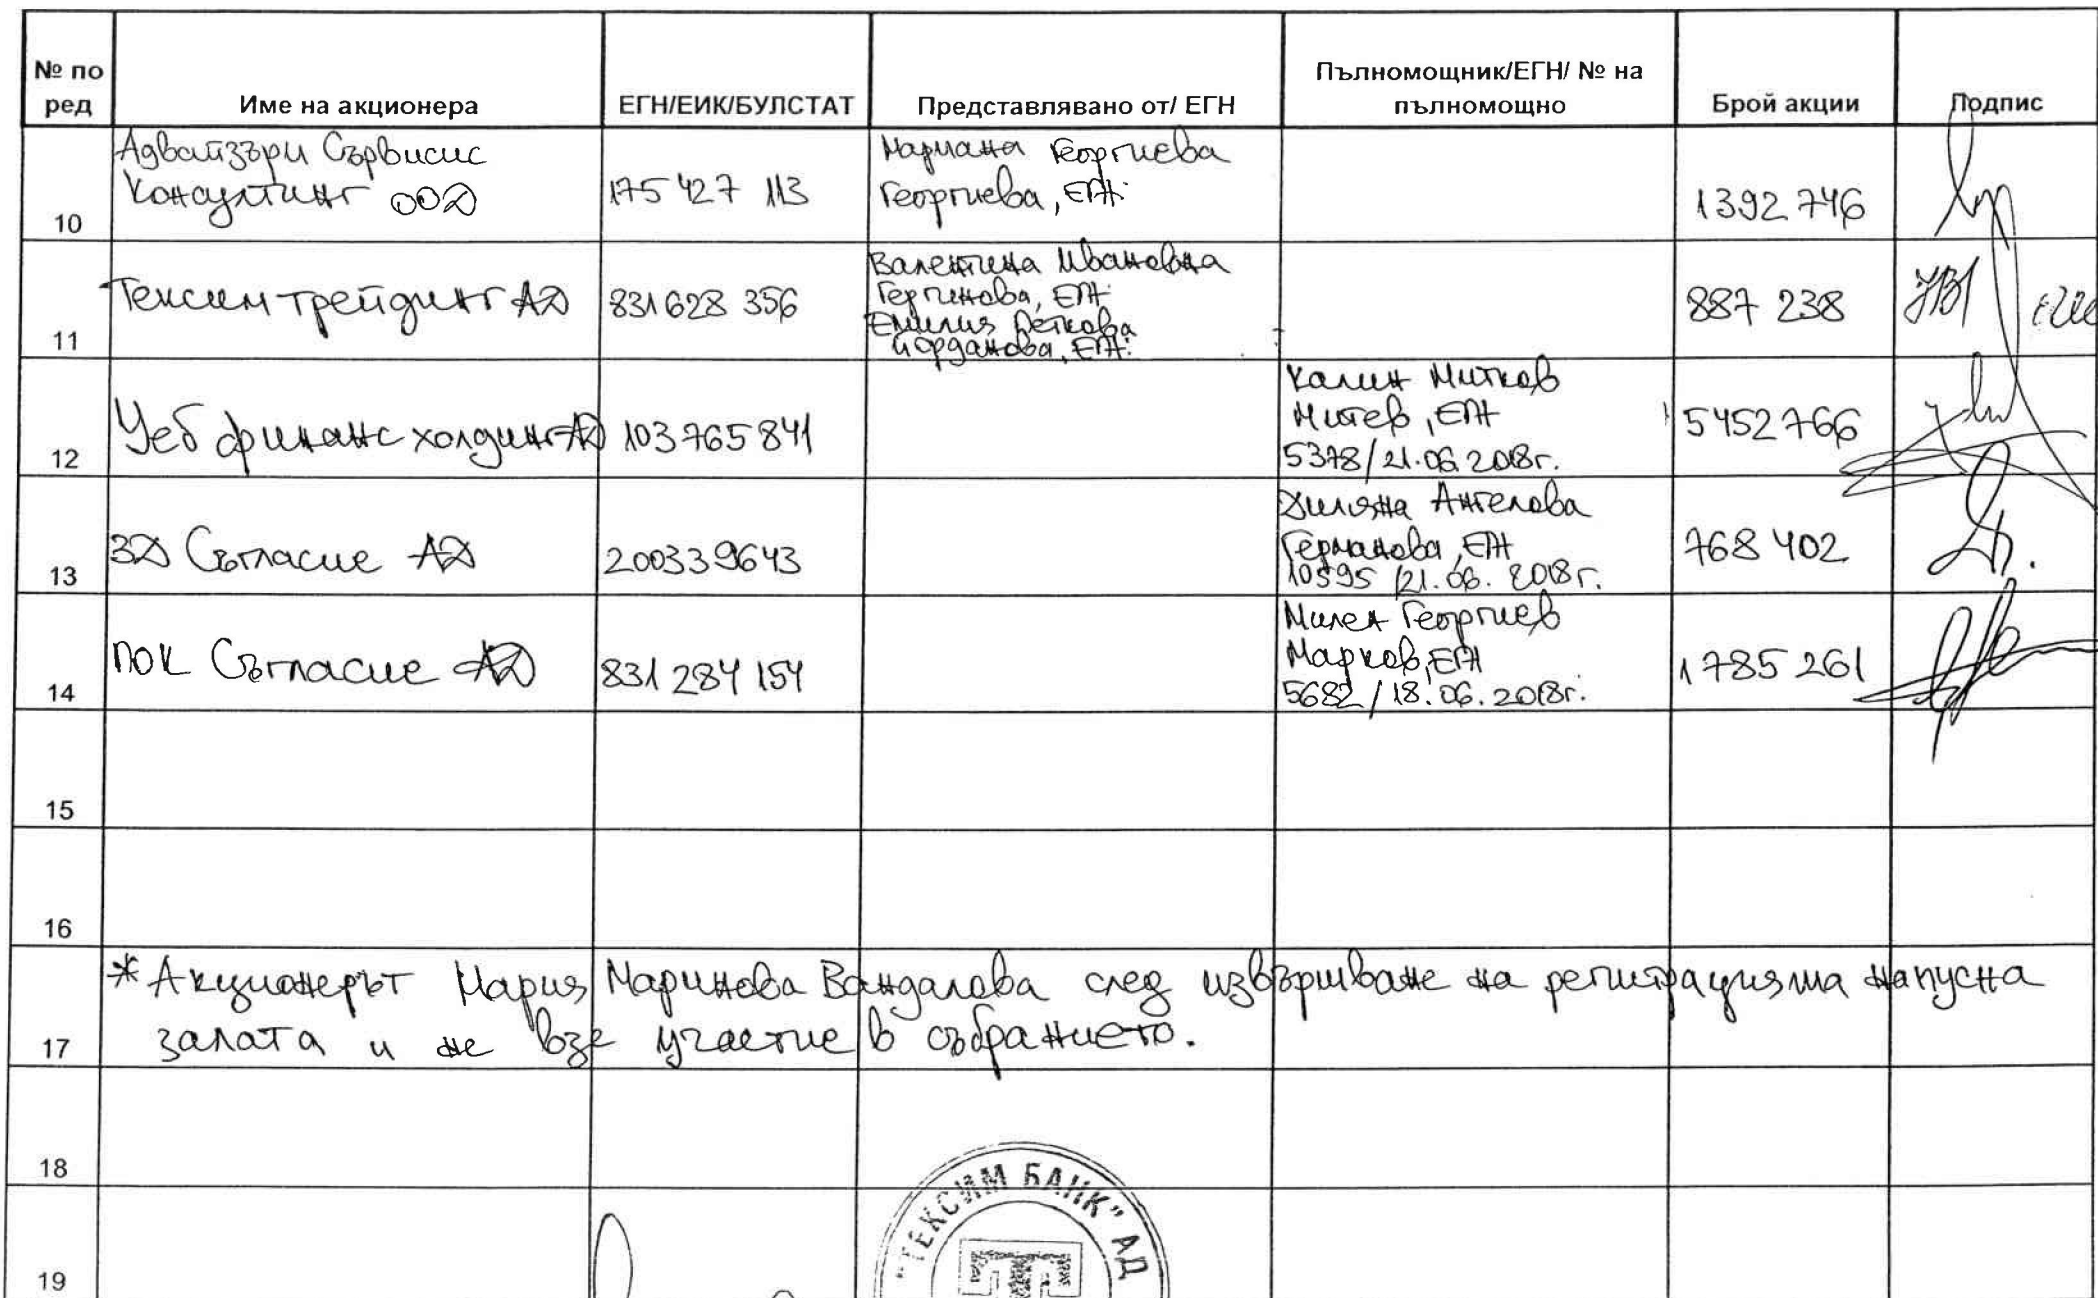 № по ред Име на акционера ЕГН/ЕИК/БУЛСТАТ Представлявано от/ ЕГН Пълномощник/ЕГН/ № на пълномощно Брой акции Подпис
Адвайзъри Сървисис
Консултинг ООД
175 427 113
Мариана Георгиева
Георгиева, ЕГН:
1392 746
10
Тексим трейдинг АД
831 628 356
Валентина Ивановна
Гергинова, ЕГН:
Емилия Петкова
Йорданова, ЕГН:
887 238
11
Уеб финанс холдинг АД
103 765 841
Калин Митков
Митев, ЕГН
5378/21.06.2018г.
5452 766
12
ЗД Съгласие АД
200339643
Диляна Ангелова
Германова, ЕГН
10595/21.06.2018г.
768 402
13
ПОК Съгласие АД
831 284 154
Милен Георгиев
Марков, ЕГН
5682/18.06.2018г.
1785 261
14
15
16
* Акционерът Мария Маринова Вандалова след извършване на регистрацията напусна
залата и не взе участие в събранието.
17
18
"ТЕКСИМ БАНК" АД
19